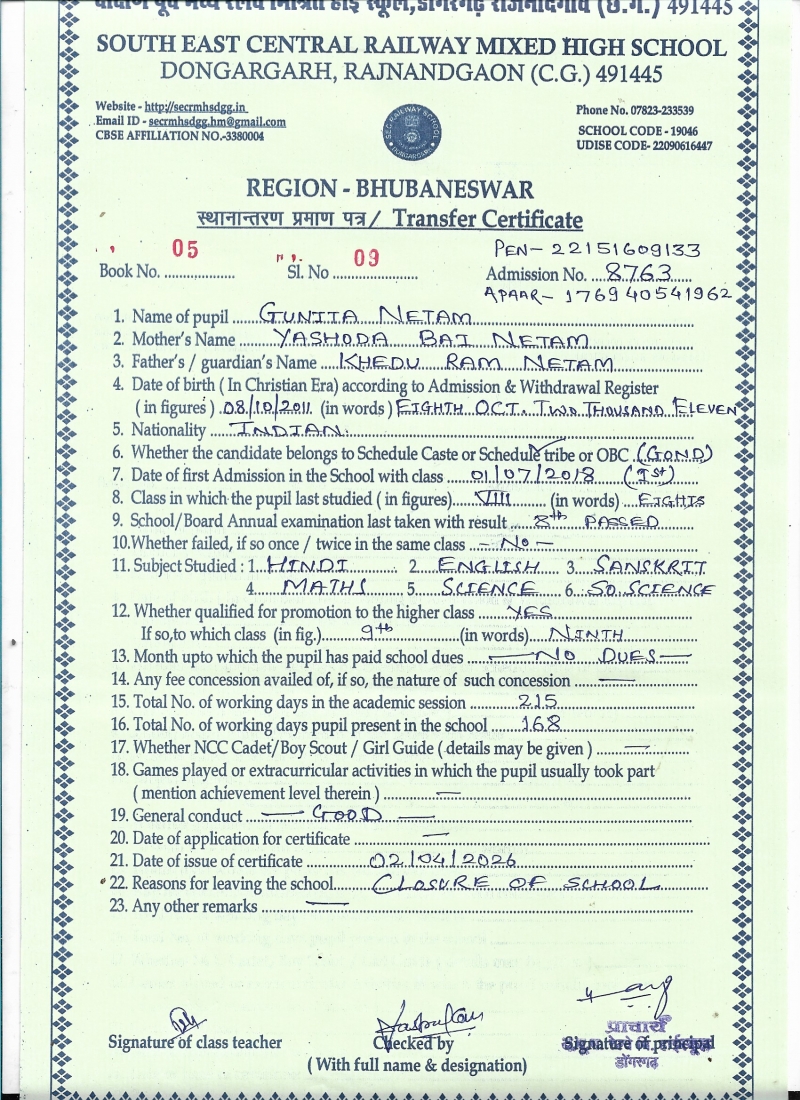 दक्षिण पूर्व मध्य रेलवे मिश्रित हाई स्कूल, डोंगरगढ़ राजनांदगांव (छ.ग.) 491445
SOUTH EAST CENTRAL RAILWAY MIXED HIGH SCHOOL
DONGARGARH, RAJNANDGAON (C.G.) 491445
Website - http://secrmhsdgg.in
Email ID - secrmhsdgg.hm@gmail.com
CBSE AFFILIATION NO.-3380004
SEC RAILWAY SCHOOL
DONGARGARH
Phone No. 07823-233539
SCHOOL CODE - 19046
UDISE CODE- 22090616447
REGION - BHUBANESWAR
स्थानान्तरण प्रमाण पत्र / Transfer Certificate
PEN- 22151609133
Book No. 05 Sl. No 09 Admission No. 8763
APAAR- 176940541962
1. Name of pupil GUNJTA NETAM
2. Mother's Name YASHODA BAI NETAM
3. Father's / guardian's Name KHEDU RAM NETAM
4. Date of birth ( In Christian Era) according to Admission & Withdrawal Register
( in figures ) 08/10/2011 (in words) EIGHTH OCT. TWO THOUSAND ELEVEN
5. Nationality INDIAN.
6. Whether the candidate belongs to Schedule Caste or Schedule tribe or OBC (GOND)
7. Date of first Admission in the School with class 01/07/2018 (Ist)
8. Class in which the pupil last studied ( in figures) VIII (in words) EIGHTS
9. School/Board Annual examination last taken with result 8th PASSED
10.Whether failed, if so once / twice in the same class - No -
11. Subject Studied : 1. HINDI 2. ENGLISH 3. SANSKRIT
4. MATHS 5. SCIENCE 6. SO. SCIENCE
12. Whether qualified for promotion to the higher class YES
If so,to which class (in fig.) 9th (in words) NINTH
13. Month upto which the pupil has paid school dues — NO DUES —
14. Any fee concession availed of, if so, the nature of such concession —
15. Total No. of working days in the academic session 215
16. Total No. of working days pupil present in the school 168
17. Whether NCC Cadet/Boy Scout / Girl Guide ( details may be given ) —
18. Games played or extracurricular activities in which the pupil usually took part
( mention achievement level therein ) —
19. General conduct — GOOD —
20. Date of application for certificate —
21. Date of issue of certificate 02/04/2026
22. Reasons for leaving the school CLOSURE OF SCHOOL
23. Any other remarks —
प्राचार्य
Signature of class teacher Checked by Signature of principal
डोंगरगढ़
( With full name & designation)